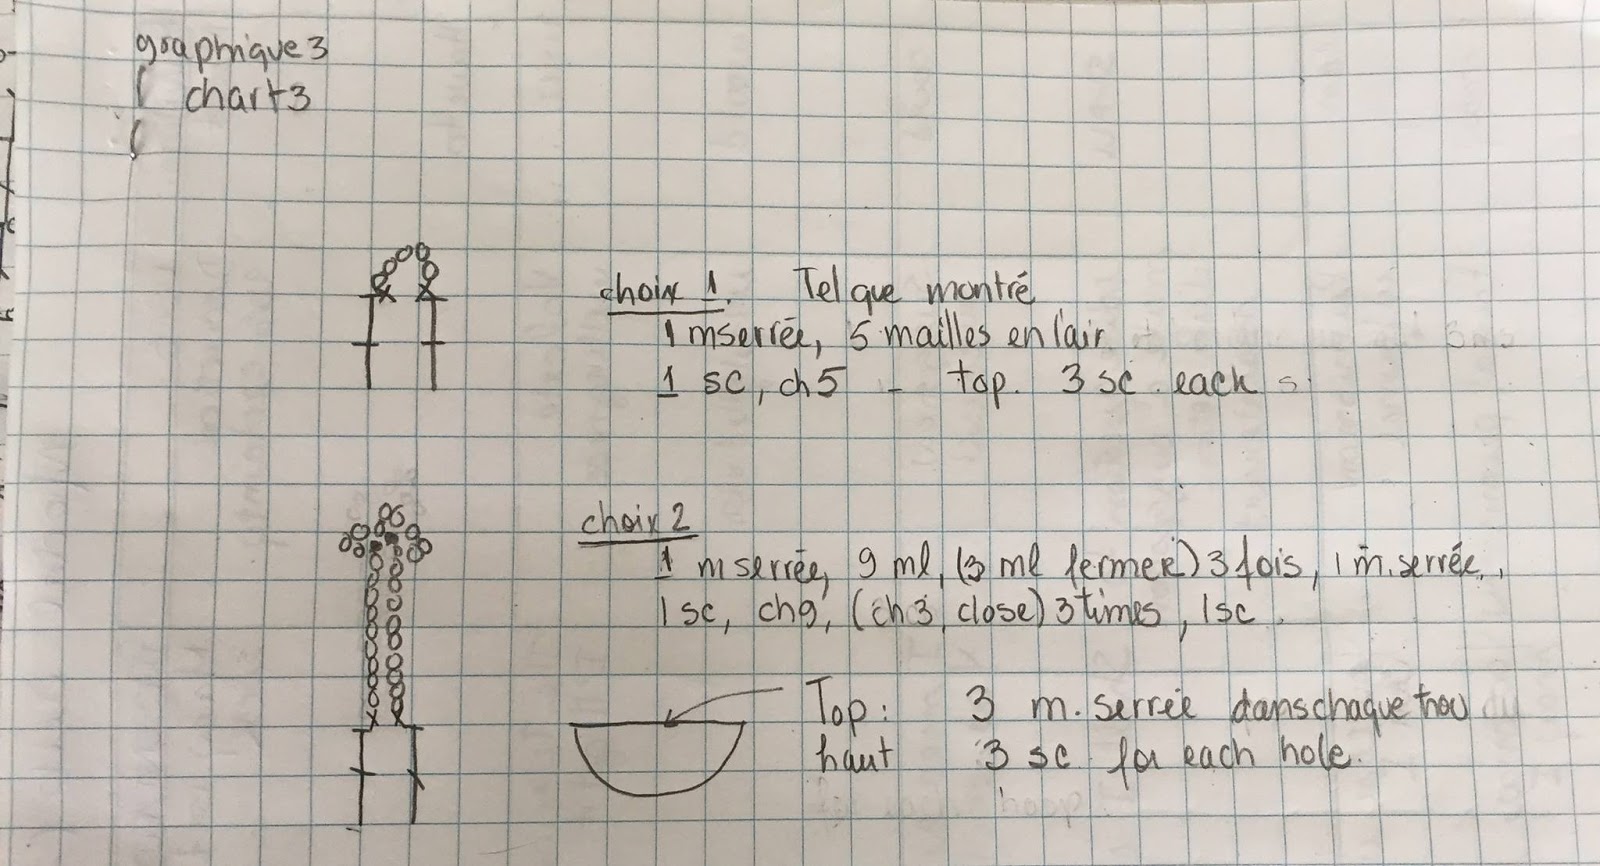 graphique 3
chart 3
choix 1. Tel que montré
1 m serrée, 5 mailles en l'air
1 sc, ch5 - top. 3 sc each
choix 2
1 m serrée, 9 ml, (3 ml fermer) 3 fois, 1 m. serrée.
1 sc, ch9, (ch 3, close) 3 times, 1sc.
Top: 3 m. serrée dans chaque trou
haut 3 sc for each hole.